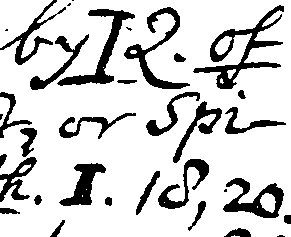 by I2. of
or Spi-
h. I. 18, 20.